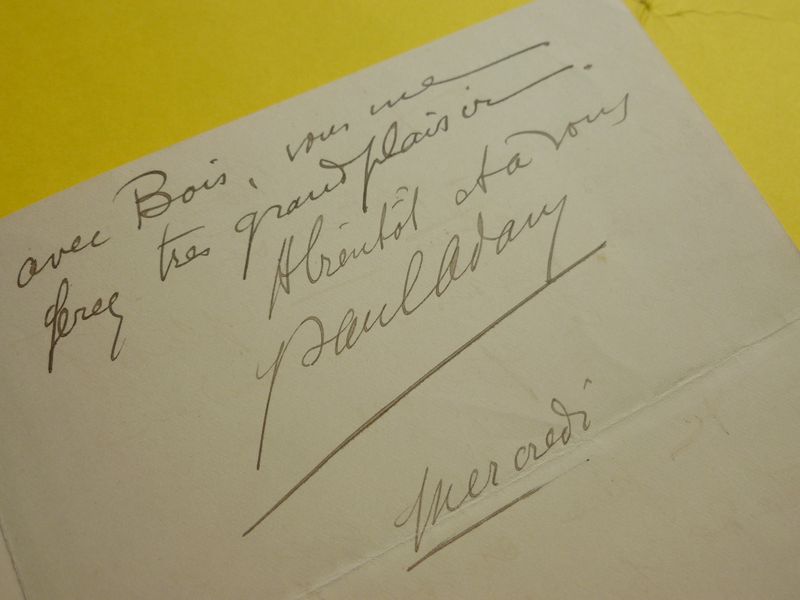 avec Bois, vous me
ferez très grand plaisir.
A bientôt et à vous
Paul Adam
Mercredi